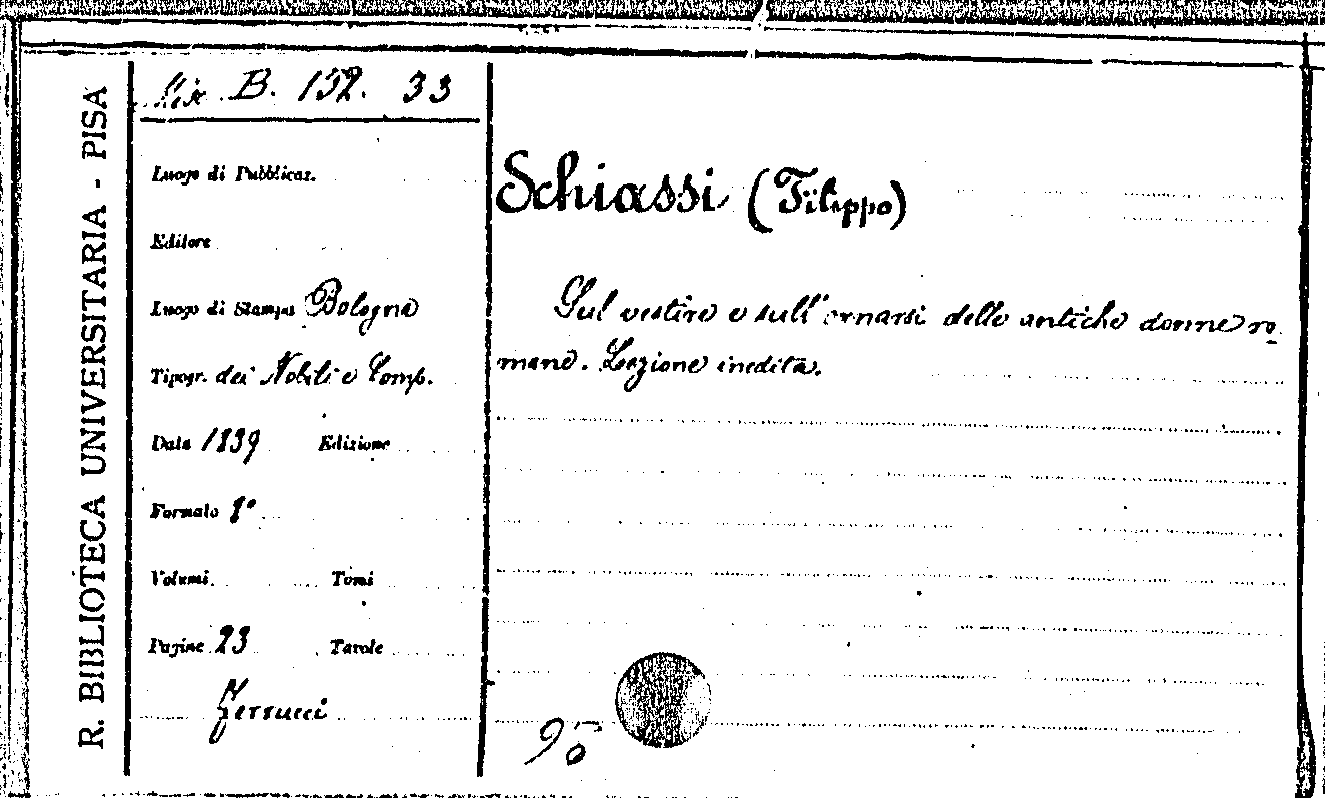 R. BIBLIOTECA UNIVERSITARIA - PISA
Mis. B. 152. 33
Luogo di Pubblicaz.
Editore
Luogo di Stampa Bologna
Tipogr. dei Nobili e Comp.
Data 1839 Edizione
Formato 8°
Volumi Tomi
Pagine 23 Tavole
Ferrucci
Schiassi (Filippo)
Sul vestire e sull'ornarsi delle antiche donne ro-
mane. Lezione inedita.